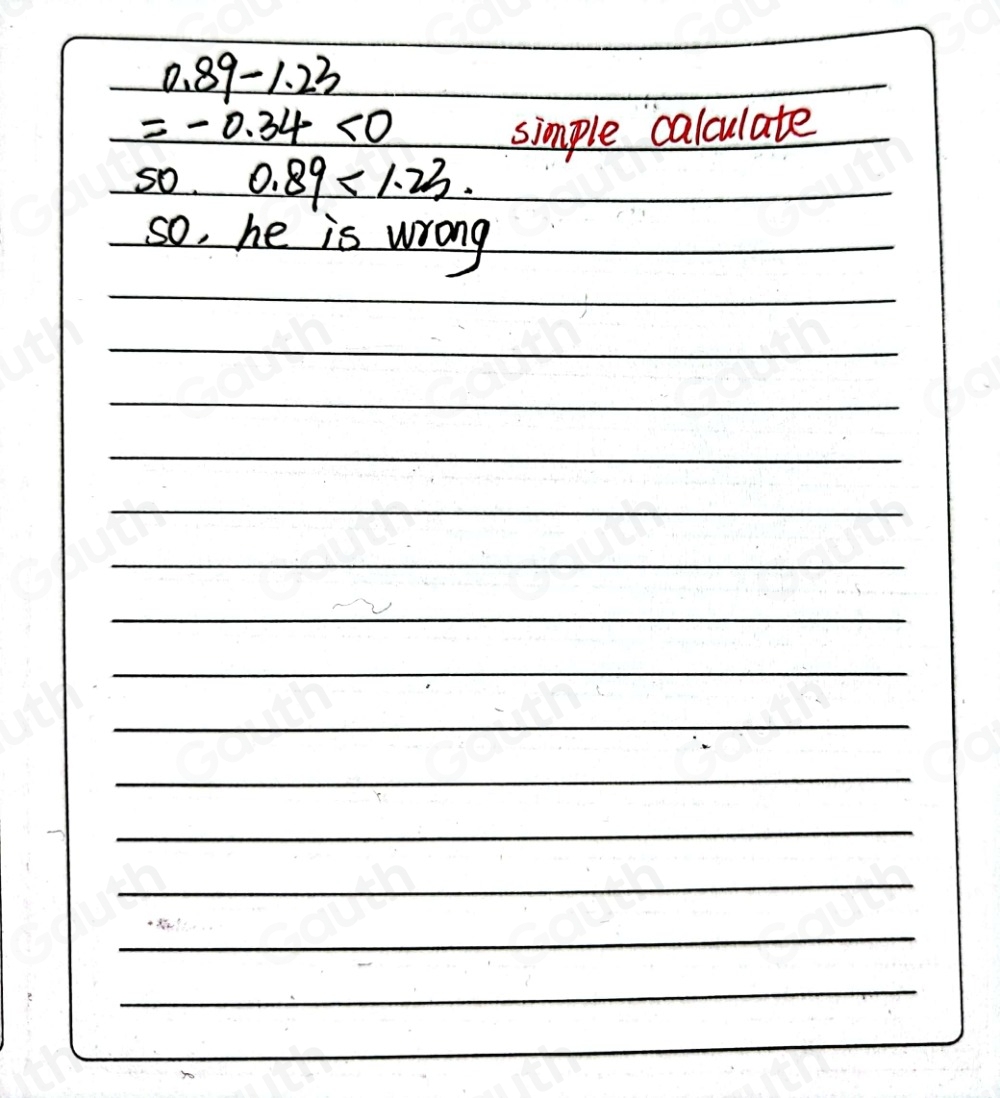 0.89-1.23
= -0.34 <0 simple calculate
so. 0.89 < 1.23.
so, he is wrong